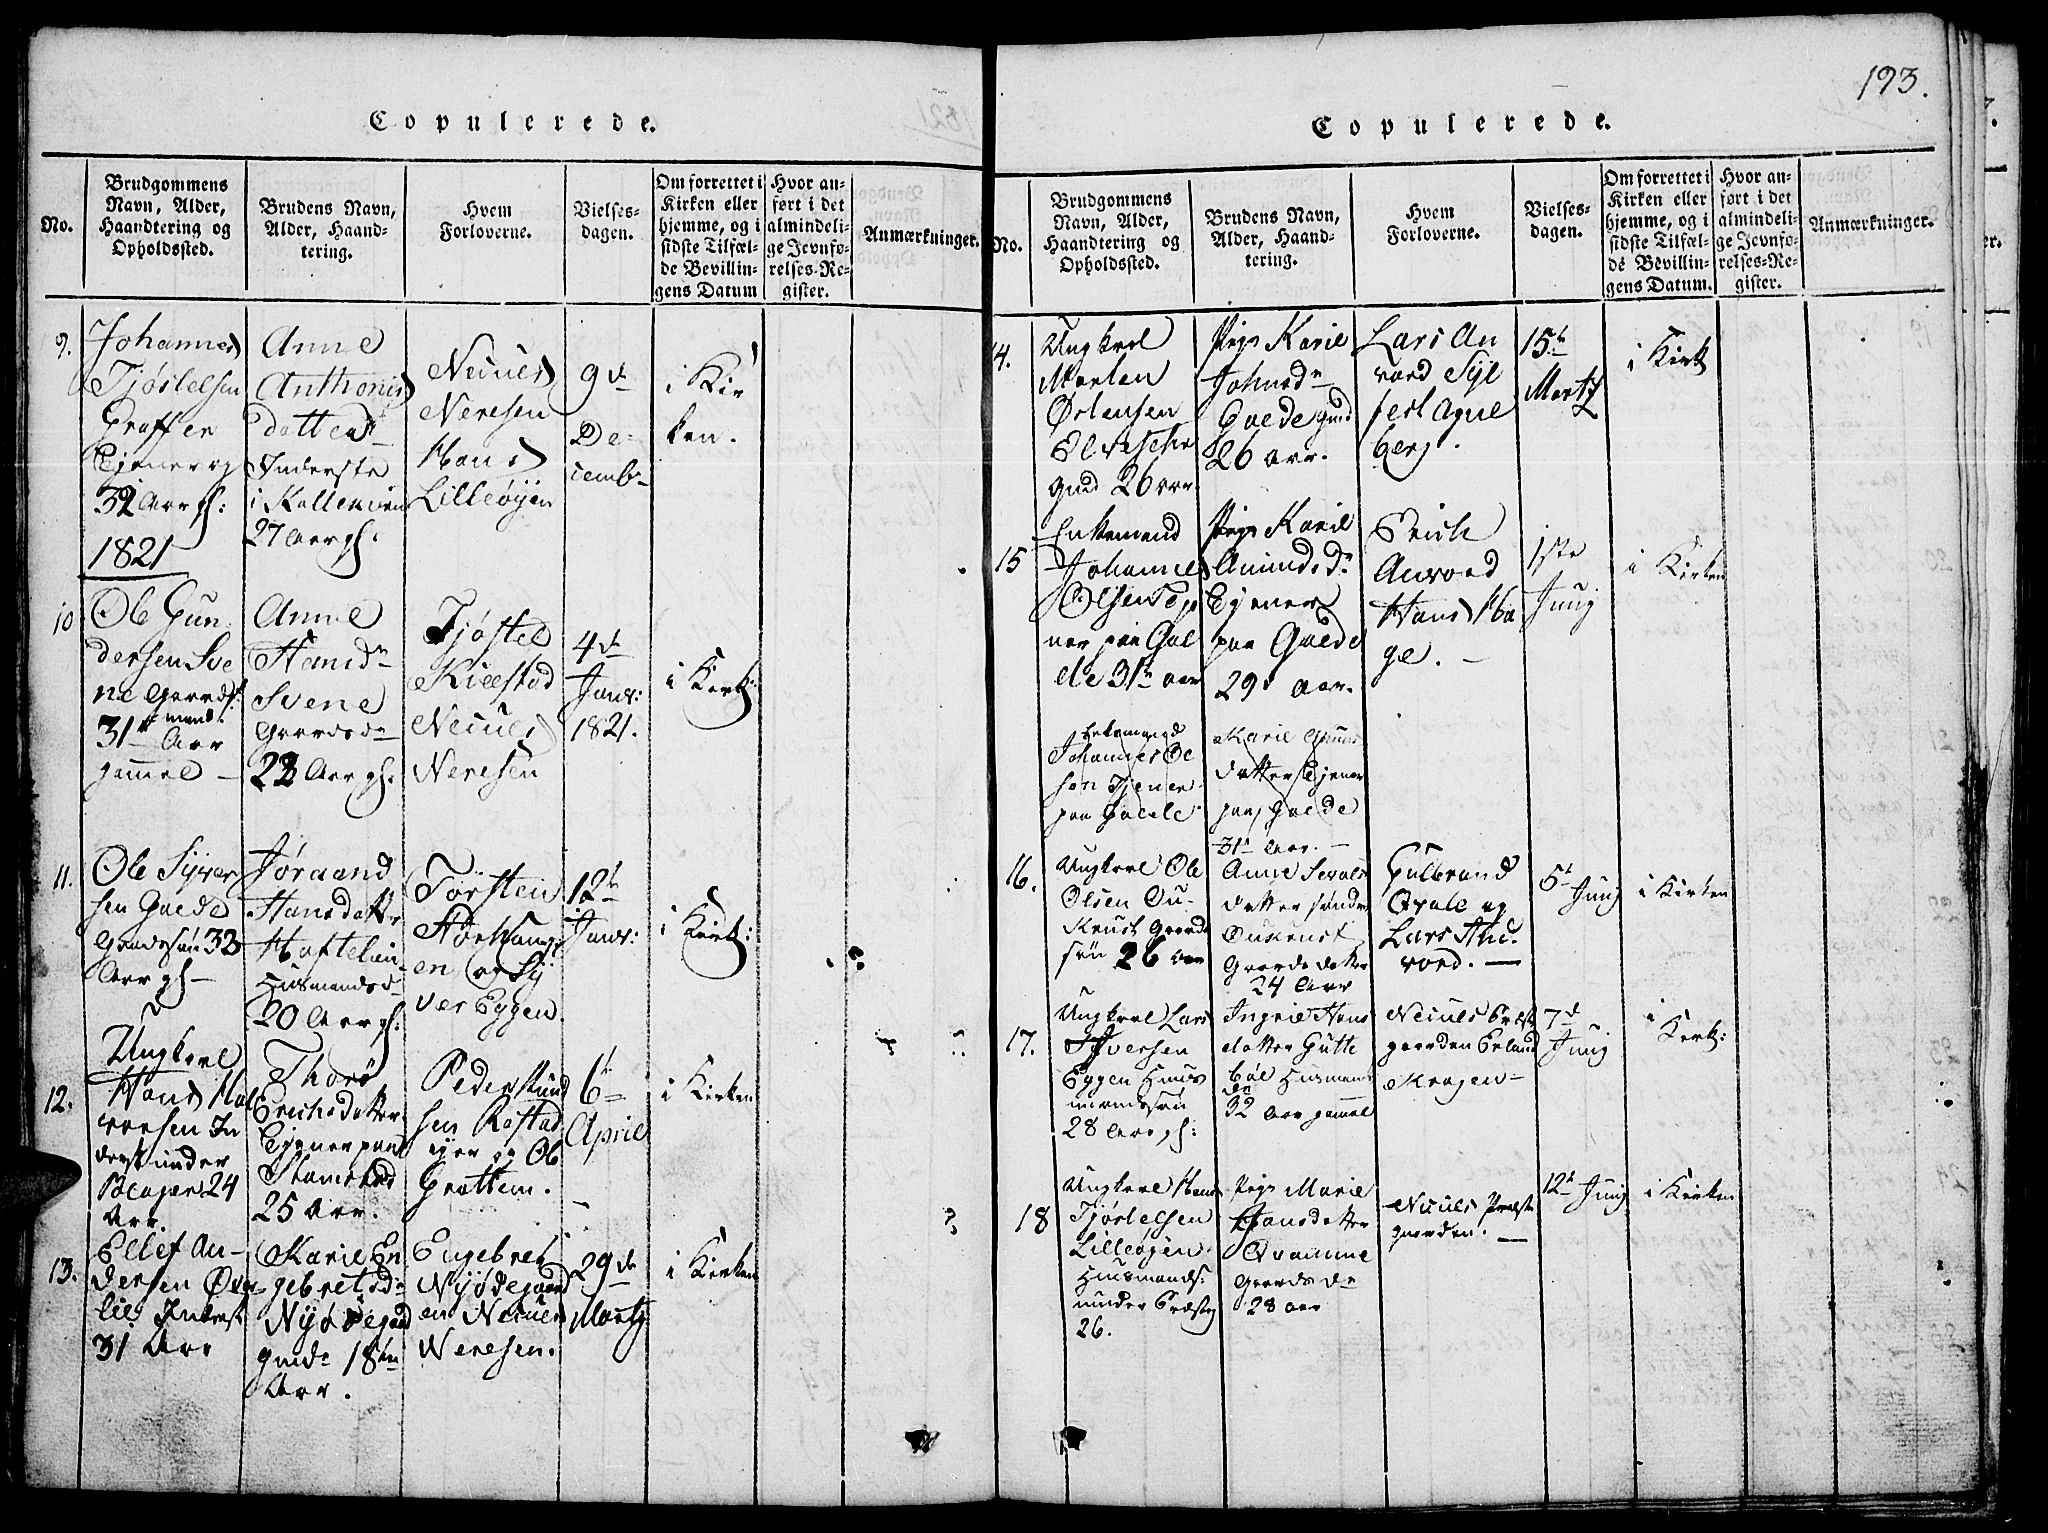 193.
Copulerede.
No.
Brudgommens
Navn, Alder,
Haandtering og
Opholdssted.
Brudens Navn,
Alder, Haand-
tering.
Hvem
Forloverne.
Vielses-
dagen.
Om forrettet i
Kirken eller
hjemme, og i
sidste Tilfæl-
de Bevillin-
gens Datum
Hvor an-
ført i det
almindeli-
ge Jevnfø-
relses-Re-
gister.
Anmærkninger.
9.
Johannes
Tjøstelsen
Graffer
Tjener og
32 Aar gl:
Anne
Anthonis
datter
Inderste
27 Aar gl.
Neruis
Neresen
Hans
Lilleøyen
9de
De-
cembr
i Kir
ken.
1821
10
Ole Gun
dersen Sve
ne Gaards
mand
31te Aar
gammel
Anne
Hansdr
Svene
Gaardsdr
22 Aar gl.
Tjøstel
Kielstad
Neruis
Neresen
4de
Janr:
1821.
i Kirk:
11.
Ole Syver
sen Gaede
Gaardssøn 32
Aar gl
Jøraand
Hansdatter
Hattelien
Husmandsdr
20 Aar gl.
Torsten
en og Sy
ver Eggen.
12te
Janr:
i Kirk:
12.
Ungkarl
Hans Hal
vorsen In
derst under
24
Aar.
Thorø
Erichsdatter
Tjener paa
Stamstad
25 Aar.
Peder Amund
sen Rostad
eier og Ole
Grottem.
6te
April
i Kirken
13.
Ellef An-
dersen Øver
lie Inderst
31 Aar
Karie En
gebretsdr
Nyødegaard
18ten
Aar.
Engebret
Nyødegaard
en Neruis
Neresen.
29de
Martz
i Kirken
Copulerede.
No.
Brudgommens
Navn, Alder,
Haandtering og
Opholdssted.
Brudens Navn,
Alder, Haand-
tering.
Hvem
Forloverne.
Vielses-
dagen.
Om forrettet i
Kirken eller
hjemme, og i
sidste Tilfæl-
de Bevillin-
gens Datum.
Hvor an-
ført i det
almindeli-
ge Jevnfø-
relses-Re-
gister.
Anmærkninger.
14.
Ungkarl
Morten
Østensen
26 aar
Pige Karie
Johnsdr
Gaede
26 aar.
Lars An
vord Syl
fest Agne
berg.
15te
Martz
i Kirk
15
Enkemand
Johannes
Olsen Tje
ner paa Gae
de 31te aar
Pige Karie
Amundsdr
Tjener
paa Gaede
29 Aar.
Erich
Anvord
Hans Ha
ge.
1ste
Junij
i Kirken
Enkemand
Johannes Ol
sen Tjener
paa Gaede
Karie Amuns
datter Tjener
paa Gaede
31 Aar.
16.
Ungkarl Ole
Olsen Du-
Knust Gaards
søn 26 Aar
Anne
datter søndre
Duknust
Gaards datter
24 Aar
Gulbrand
Qvale og
Lars An
vord.
5te Junij
i Kirken
17.
Ungkarl Lars
Syversen
Eggen Huus
mandssøn
28 Aar gl:
Ingrie Hans
datter Gutte
bøl Husmans
dr
32 Aar gammel
Neruis Præste
gaarden Erland
Kragen
7de
Junij
i
Kirk:
18
Ungkarl Hans
Tjøstelsen
Lilleøyen.
Husmands:
under Præsteg
26.
Pige Marie
Hansdatter
Qvamme
Gaards dr
28 aar
Neruis Præste
gaarden.
12te Junij
i Kirken